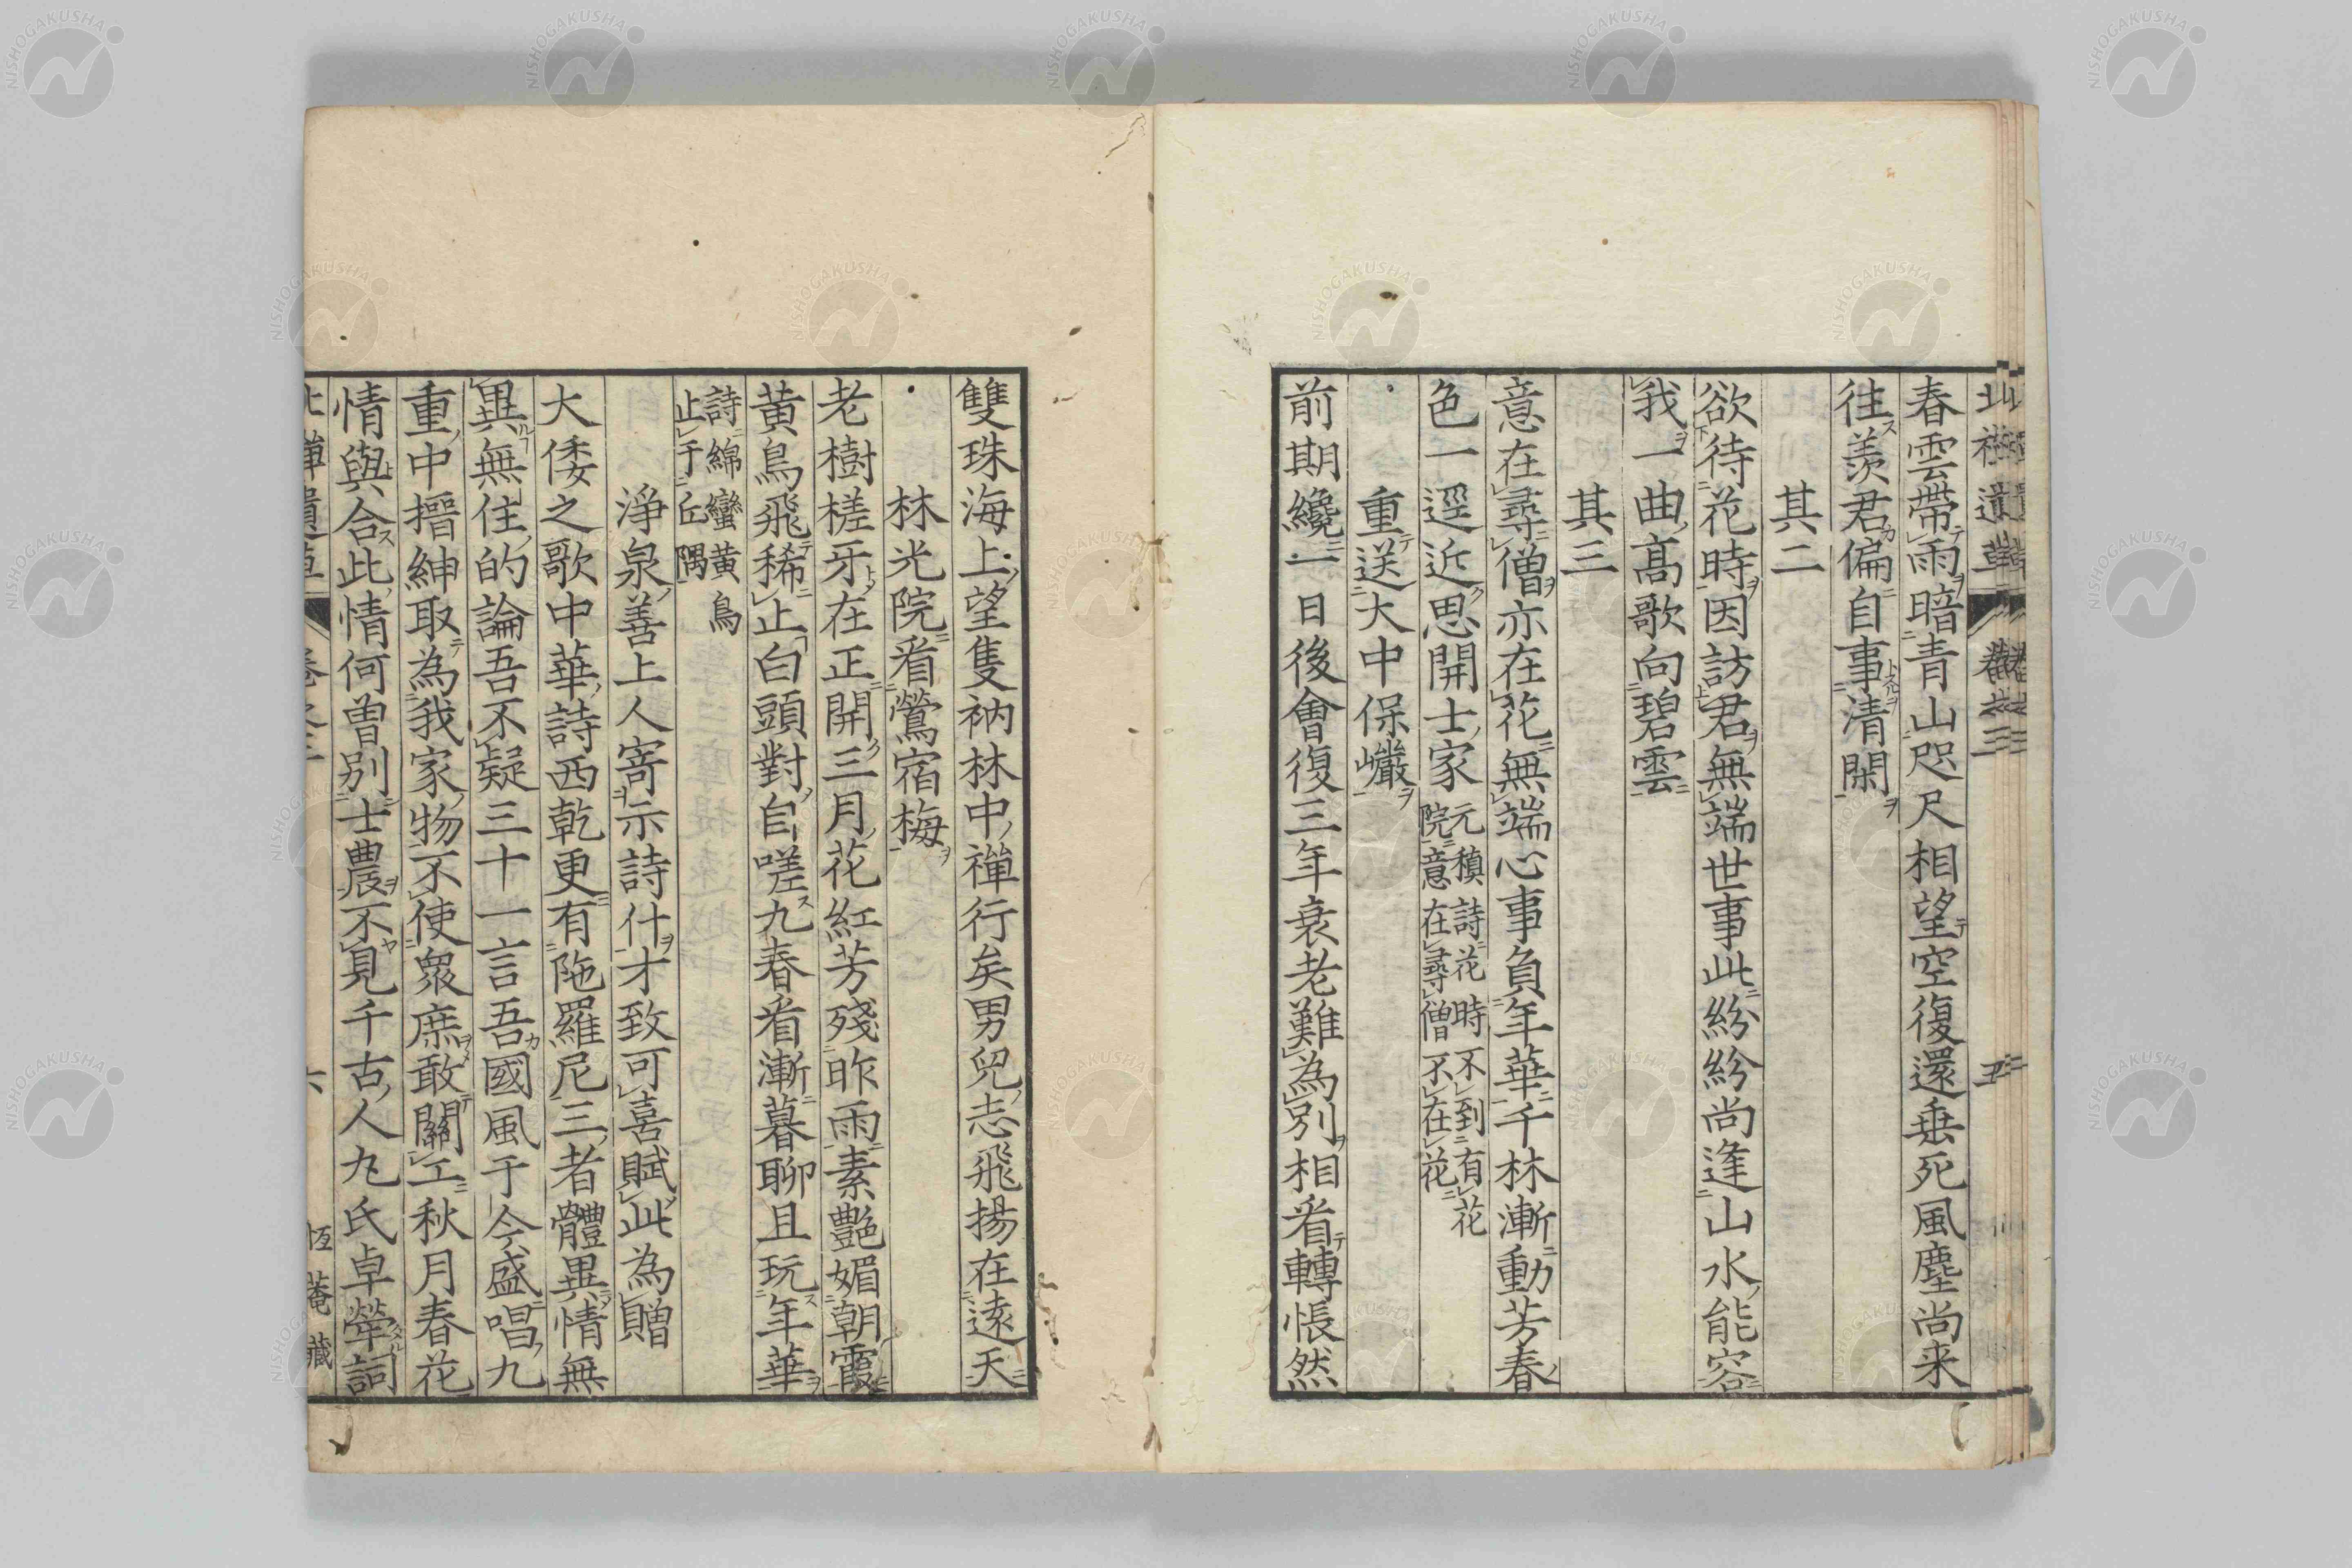 北禅遺草 卷之三 五
春雲帶雨暗青山咫尺相望空復還垂死風塵尚来
往羨君偏自事清閑
其二
欲待花時因訪君無端世事此紛紛尚逢山水能容
我一曲髙歌向碧雲
其三
意在尋僧亦在花無端心事負年華千林漸動芳春
色一逕近思開士家
元稹詩花時不到有花
院意在尋僧不在花
重送大中保巘
前期纔一日後會復三年衰老難為別相看轉悵然
雙珠海上望隻衲林中禪行矣男兒志飛揚在遠天
林光院看鶯宿梅
老樹槎牙在正開三月花紅芳殘昨雨素艷媚朝霞
黄鳥飛稀止白頭對自嗟九春看漸暮聊且玩年華
詩綿蠻黄鳥
止于丘隅
淨泉善上人寄示詩什才致可喜賦此為贈
大倭之歌中華詩西乾更有陁羅尼三者體異情無
異無住的論吾不疑三十一言吾國風于今盛唱九
重中搢紳取為我家物不使衆庶敢關工秋月春花
情與合此情何曽別士農不見千古人丸氏卓犖詞
北禅遺草 卷之三 六 恆菴藏
NISHOGAKUSHA